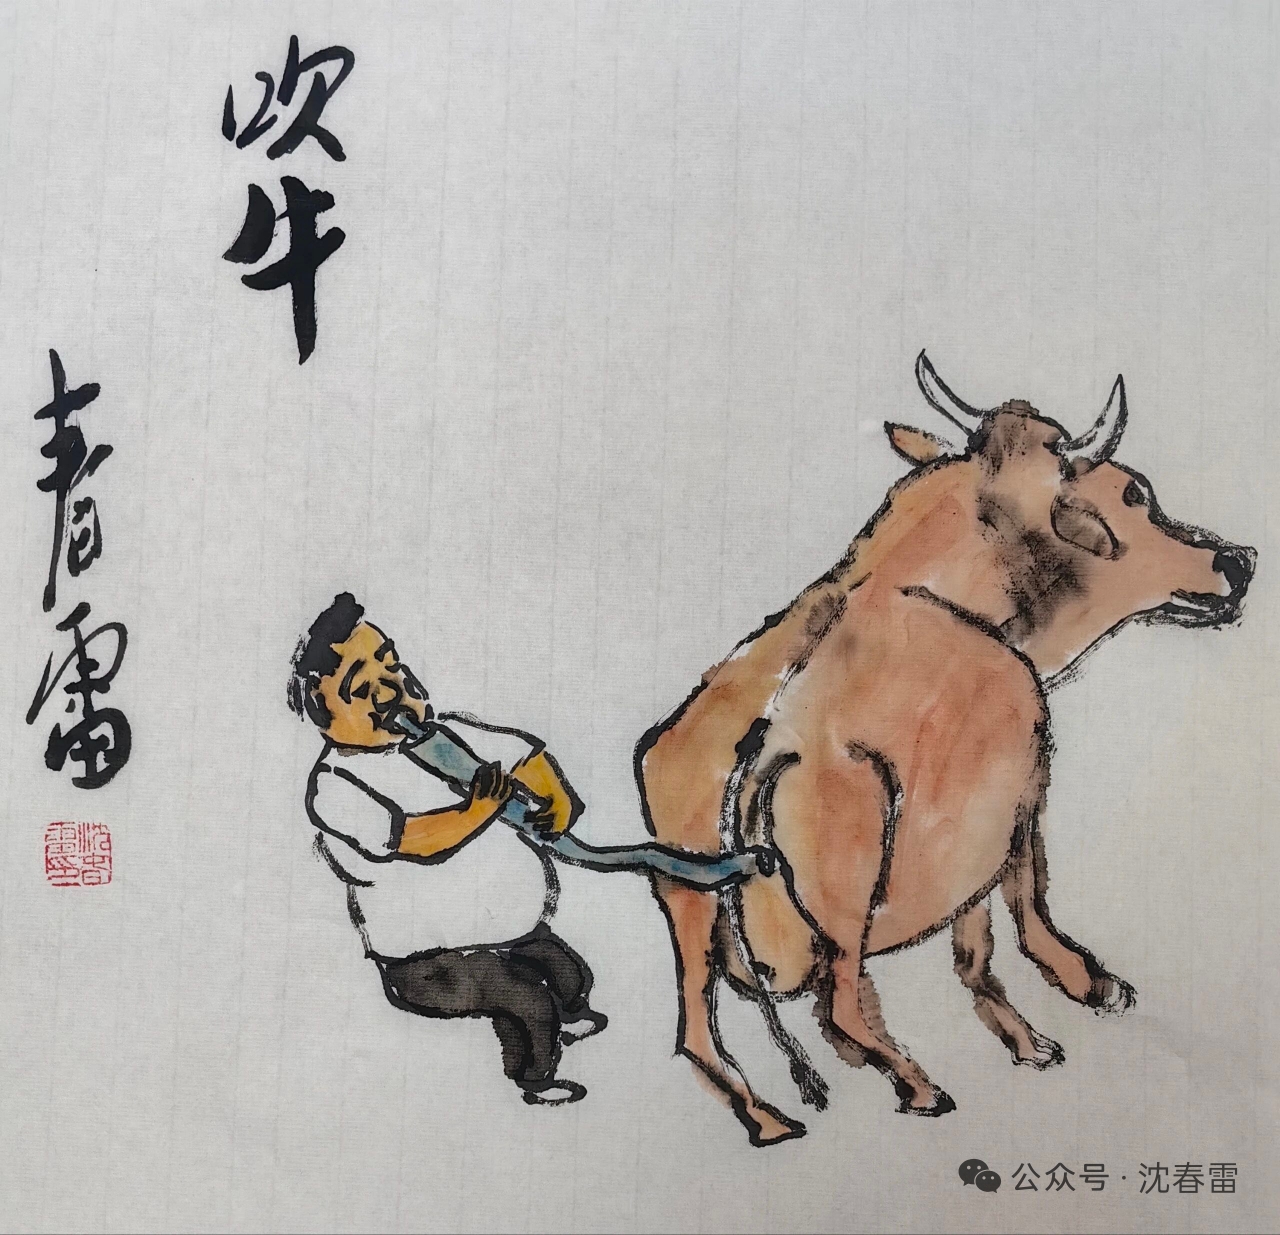 吹牛
春雷
沈春
雷印
公众号·沈春雷